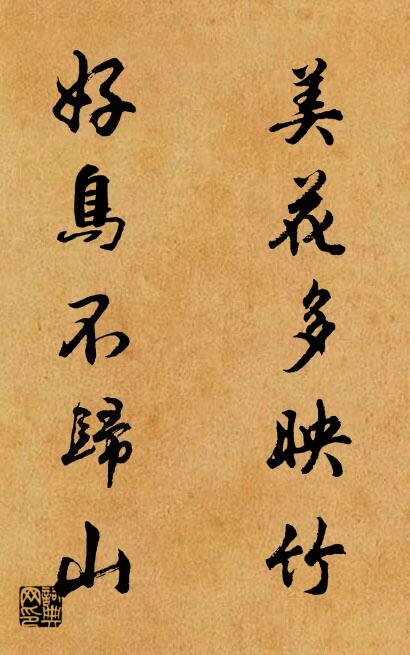 美花多映竹
好鳥不歸山